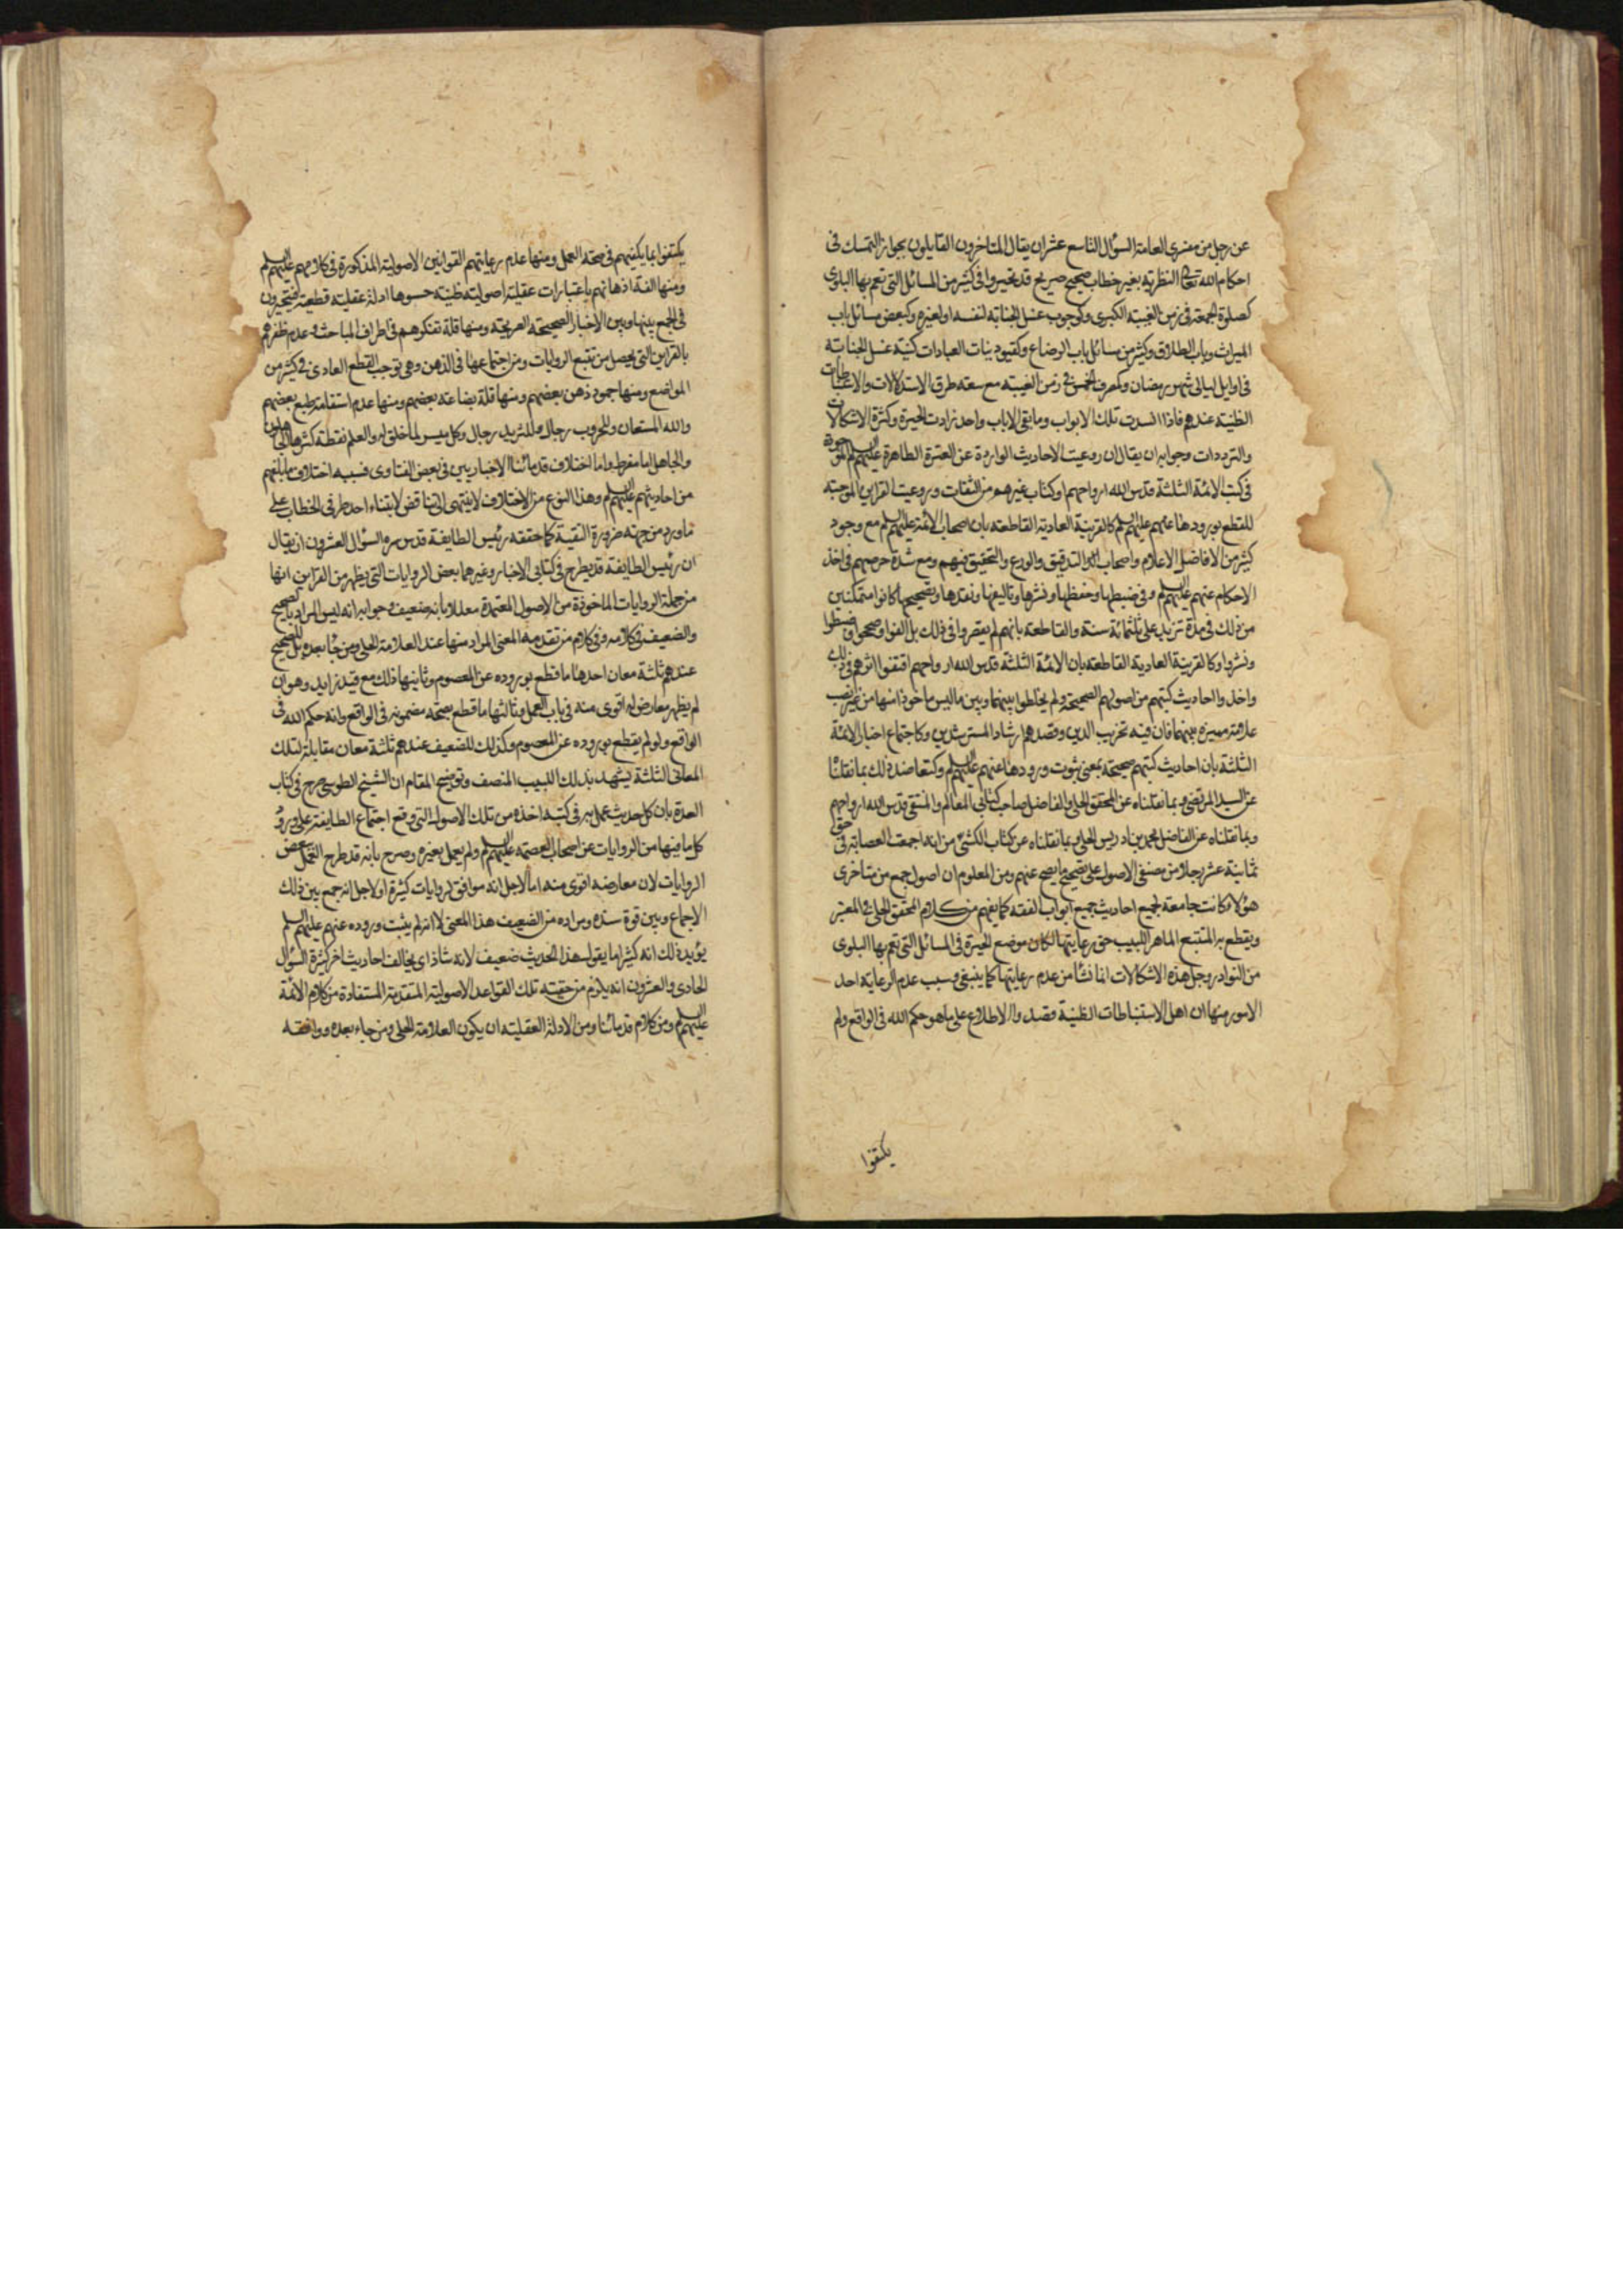 عن رجل من مفسري العامة السؤال التاسع عشر ان يقال المتاخرون القايلون بجواز التمسك في
احكام الله تعالى النظرية بغير خطاب صحيح صريح قد تحيروا في كثير من المسائل التي تعم بها البلوى
كصلوة الجمعة في زمن الغيبة الكبرى وكوجوب غسل الجنابة لنفسه او لغيره وكبعض مسائل باب
الميراث وباب الطلاق وكثير من مسائل باب الرضاع وكقيود نيات العبادات كنية غسل الجنابة
في اوايل ليالي شهر رمضان وكمصرف الخمس في زمن الغيبة مع سعة طرق الاستدلالات والاستنباطات
الظنية عندهم فاذا انسدت تلك الابواب وما بقي الا باب واحد زادت الحيرة وكثرة الاشكالات
والترددات وجوابه ان يقال ان روعيت الاحاديث الواردة عن العترة الطاهرة عليهم السلم الموجودة
في كتب الائمة الثلثة قدس الله ارواحهم او كتاب غيرهم من الثقات وروعيت القراين الموجبة
للقطع بورودها عنهم عليهم السلم كالقرينة العادية القاطعة بان اصحاب الائمة عليهم السلم مع وجود
كثير من الافاضل الاعلام واصحاب التدقيق والورع والتحقيق فيهم ومع شدة حرصهم في اخذ
الاحكام عنهم عليهم السلم وفي ضبطها وحفظها ونشرها وتاليفها ونقدها وتصحيحها كانوا متمكنين
من ذلك في مدة تزيد على ثلثمائة سنة والقاطعة بانهم لم يقصروا في ذلك بل الفوا وصححوا وضبطوا
ونشروا وكالقرينة العادية القاطعة بان الائمة الثلثة قدس الله ارواحهم اقتفوا اثرهم في ذلك
واخذوا احاديث كتبهم من اصولهم الصحيحة ولم يخلطوا بينها وبين ما ليس ماخوذا منها من غير نصب
علامة مميزة بينهما فان فيه تخريب الدين وقصدهم ارشاد المسترشدين وكاجتماع اخبار الائمة
الثلثة بان احاديث كتبهم صحيحة بمعنى ثبوت ورودها عنهم عليهم السلم وكتعاضد ذلك بما نقلنا
عن السيد المرتضى وبما نقلناه عن المحقق الحلي والفاضل صاحب كتابي المعالم والمنتقى قدس الله ارواحهم
وبما نقلناه عن الفاضل محمد بن ادريس الحلي وبما نقلناه عن كتاب الكشي من انه اجمعت العصابة في حق
ثمانية عشر رجلا من مصنفي الاصول على تصحيح ما يصح عنهم ومن المعلوم ان اصول جمع من متاخري
هؤلاء كانت جامعة لجميع احاديث جميع ابواب الفقه كما يفهم من كلام المحقق الحلي في المعتبر
ويقطع به المتتبع الماهر اللبيب حق رعايتها لكان موضع الحيرة في المسائل التي تعم بها البلوى
من النوادر وجل هذه الاشكالات انما نشا من عدم رعايتها كما ينبغي وسبب عدم الرعاية احد
الامور منها ان اهل الاستنباطات الظنية قصدوا الاطلاع على ما هو حكم الله في الواقع ولم
يكتفوا
يكتفوا بما يكفيهم في صحة العمل ومنها عدم رعايتهم القوانين الاصولية المذكورة في كلامهم عليهم السلم
ومنها الفة اذهانهم باعتبارات عقلية اصولية ظنية حسبوها ادلة عقلية قطعية فيتحيرون
في الجمع بينها وبين الاخبار الصحيحة الصريحة ومنها قلة تفكرهم في اطراف المباحث وعدم ظفرهم
بالقراين التي يحصل من تتبع الروايات ومن اجتماعها في الذهن وهي توجب القطع العادي في كثير من
المواضع ومنها جمود ذهن بعضهم ومنها قلة بضاعة بعضهم ومنها عدم استقامة طبع بعضهم
والله المستعان وللحروب رجال وللثريد رجال وكل ميسر لما خلق له والعلم نقطة كثرها الجاهلون
والجاهل اما مفرط واما اختلاف قدمائنا الاخباريين في بعض الفتاوى فسببه اختلاف ما بلغهم
من احاديثهم عليهم السلم وهذا النوع من الاختلاف لا ينتهي الى تناقض لابتناء احد طرفي الخطاب على
ما ورد من جهة ضرورة التقية كما حققه رئيس الطايفة قدس سره السؤال العشرون ان يقال
ان رئيس الطايفة قد يطرح في كتابي الاخبار وغيرهما بعض الروايات التي يظهر من القراين انها
من جملة الروايات الماخوذة من الاصول المعتمدة معللا بانه ضعيف وجوابه انه ليس المراد بالصحيح
والضعيف في كلامه وفي كلام من تقدمه المعنى المراد منها عند العلامة الحلي ومن جاء بعده بل للصحيح
عندهم ثلثة معان احدها ما قطع بوروده عن المعصوم وثانيها ذلك مع قيد زايد وهو ان
لم يظهر معارض له اقوى منه في باب العمل وثالثها ما قطع بصحة مضمونه في الواقع وانه حكم الله في
الواقع ولو لم يقطع بوروده عن المعصوم وكذلك للضعيف عندهم ثلثة معان مقابلة لتلك
المعاني الثلثة يشهد بذلك اللبيب المنصف وتوضيح المقام ان الشيخ الطوسي صرح في كتاب
العدة بان كل حديث عمل به في كتبه اخذه من تلك الاصول التي وقع اجتماع الطايفة على ورود
كل ما فيها من الروايات عن اصحاب العصمة عليهم السلم ولم يعمل بغيره وصرح بانه قد طرح العمل ببعض
الروايات لان معارضه اقوى منه اما لاجل انه موافق لروايات كثيرة او لاجل انه جمع بين ذلك
الاجماع وبين قوة سنده ومراده من الضعيف هذا المعنى لا انه لم يثبت وروده عنهم عليهم السلم
يؤيد ذلك انه كثيرا ما يقول هذا الحديث ضعيف لانه شاذ اي يخالف احاديث اخر كثيرة السؤال
الحادي والعشرون انه يلزم من حقية تلك القواعد الاصولية المتقدمة المستفادة من كلام الائمة
عليهم السلم ومن كلام قدمائنا ومن الادلة العقلية ان يكون العلامة الحلي ومن جاء بعده ووافقه